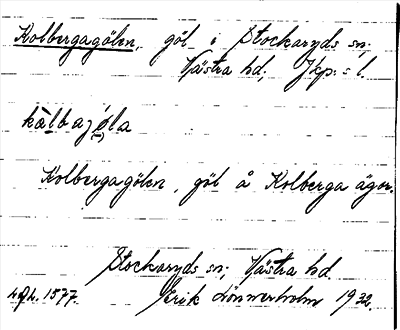 Kolbergagölen, göl i Stockaryds sn;
Västra hd, Jkp:s l.
kålbagǫ́la
Kolbergagölen, göl å Kolberga ägor.
Stockaryds sn; Västra hd.
1577. Erik Lönnerholm 1932.